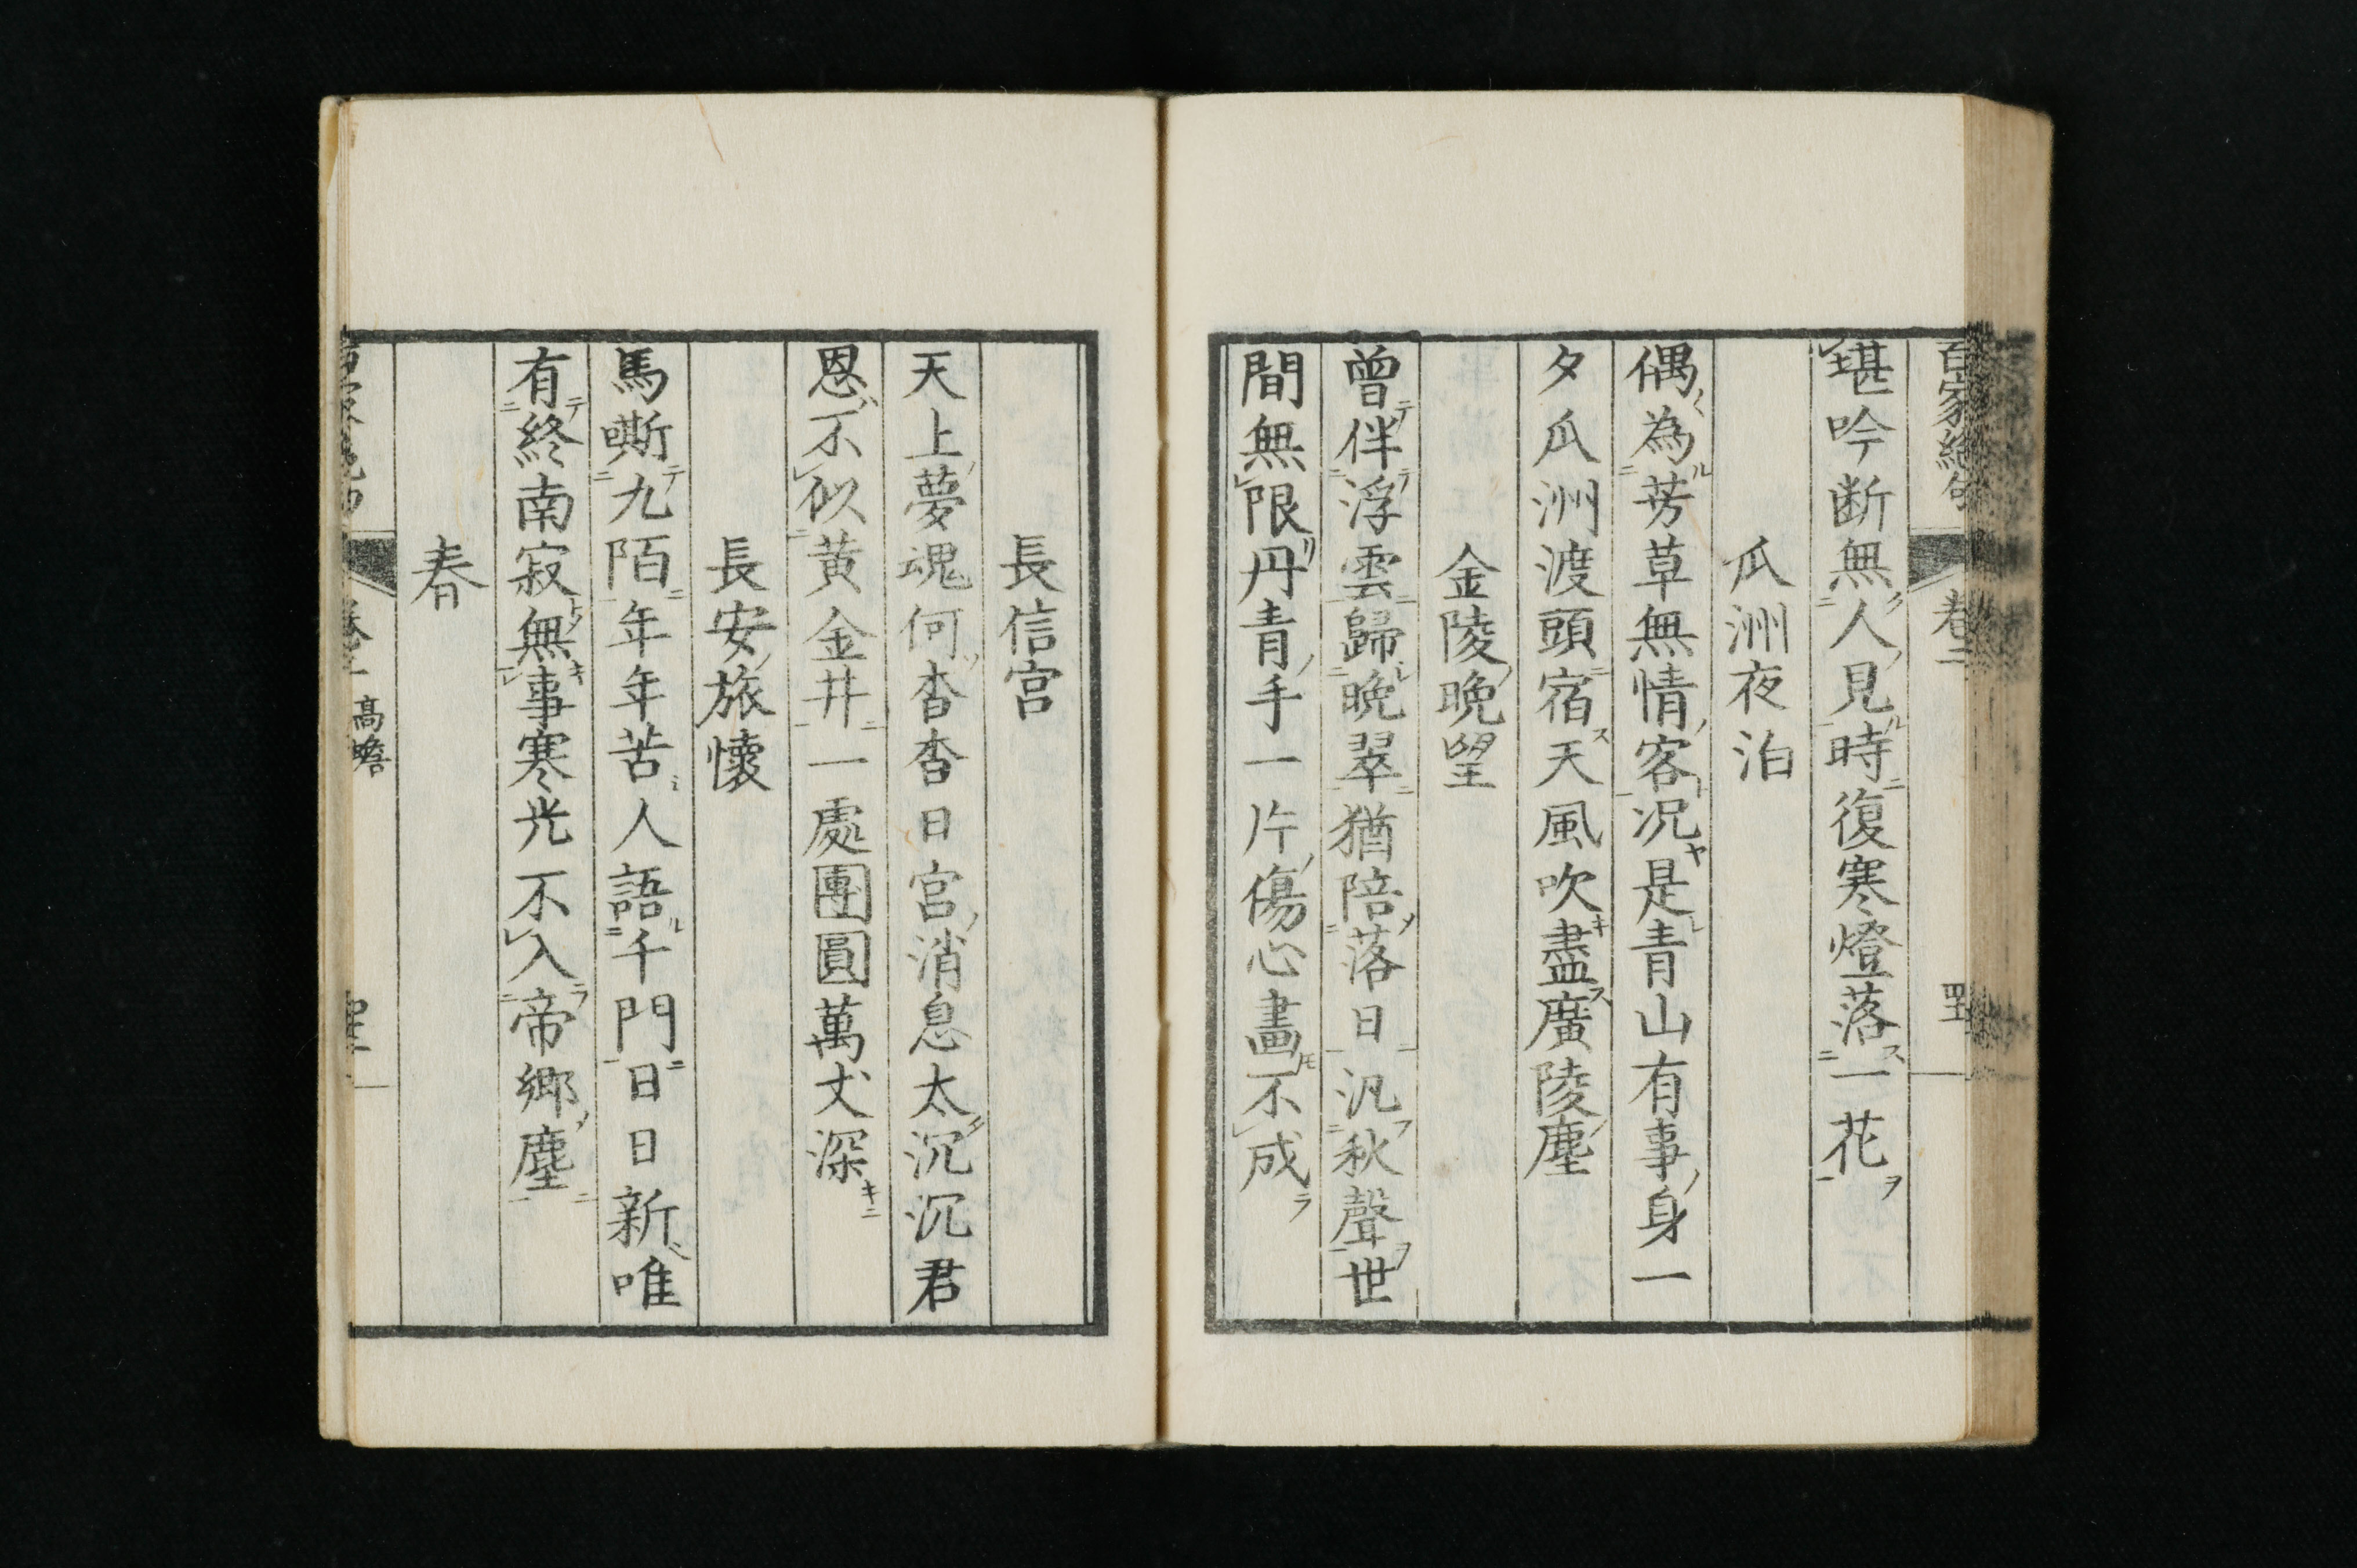 百家絶句 卷二
堪吟断無人見時復寒燈落一花
瓜洲夜泊
偶為芳草無情客况是青山有事身一
夕瓜洲渡頭宿天風吹盡廣陵塵
金陵晩望
曾伴浮雲歸晩翠猶陪落日汎秋聲世
間無限丹青手一片傷心畫不成
長信宫
天上夢魂何杳杳日宫消息太沉沉君
恩不似黄金井一處團圓萬丈深
長安旅懷
馬嘶九陌年年苦人語千門日日新唯
有終南寂無事寒光不入帝郷塵
春
高蟾